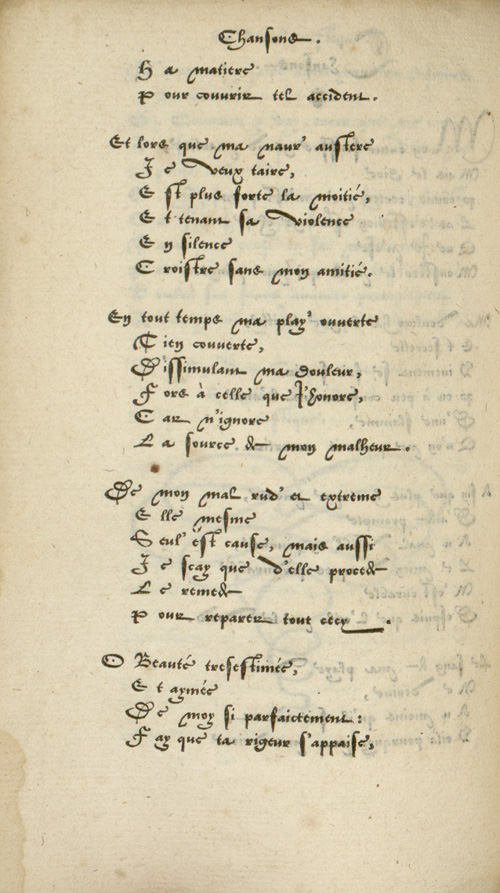 Chansons.
H a matiere
P our couvrir tel accident.
Et lors que ma navr' austere
J e veux taire,
E st plus forte la moitié,
E t tenant sa violence
E n silence
C roistre sans mon amitié.
En tout temps ma play' ouverte
T ien couverte,
D issimulant ma douleur,
F ors à celle que j'honore,
C ar n'ignore
L a source de mon malheur.
De mon mal rud' et extreme
E lle mesme
S eul' est cause, mais aussi
J e scay que d'elle procede
L e remede
P our reparer tout cecy.
O Beauté tresestimée,
E t aymée
D e moy si parfaictement:
F ay que ta rigeur s'appaise,